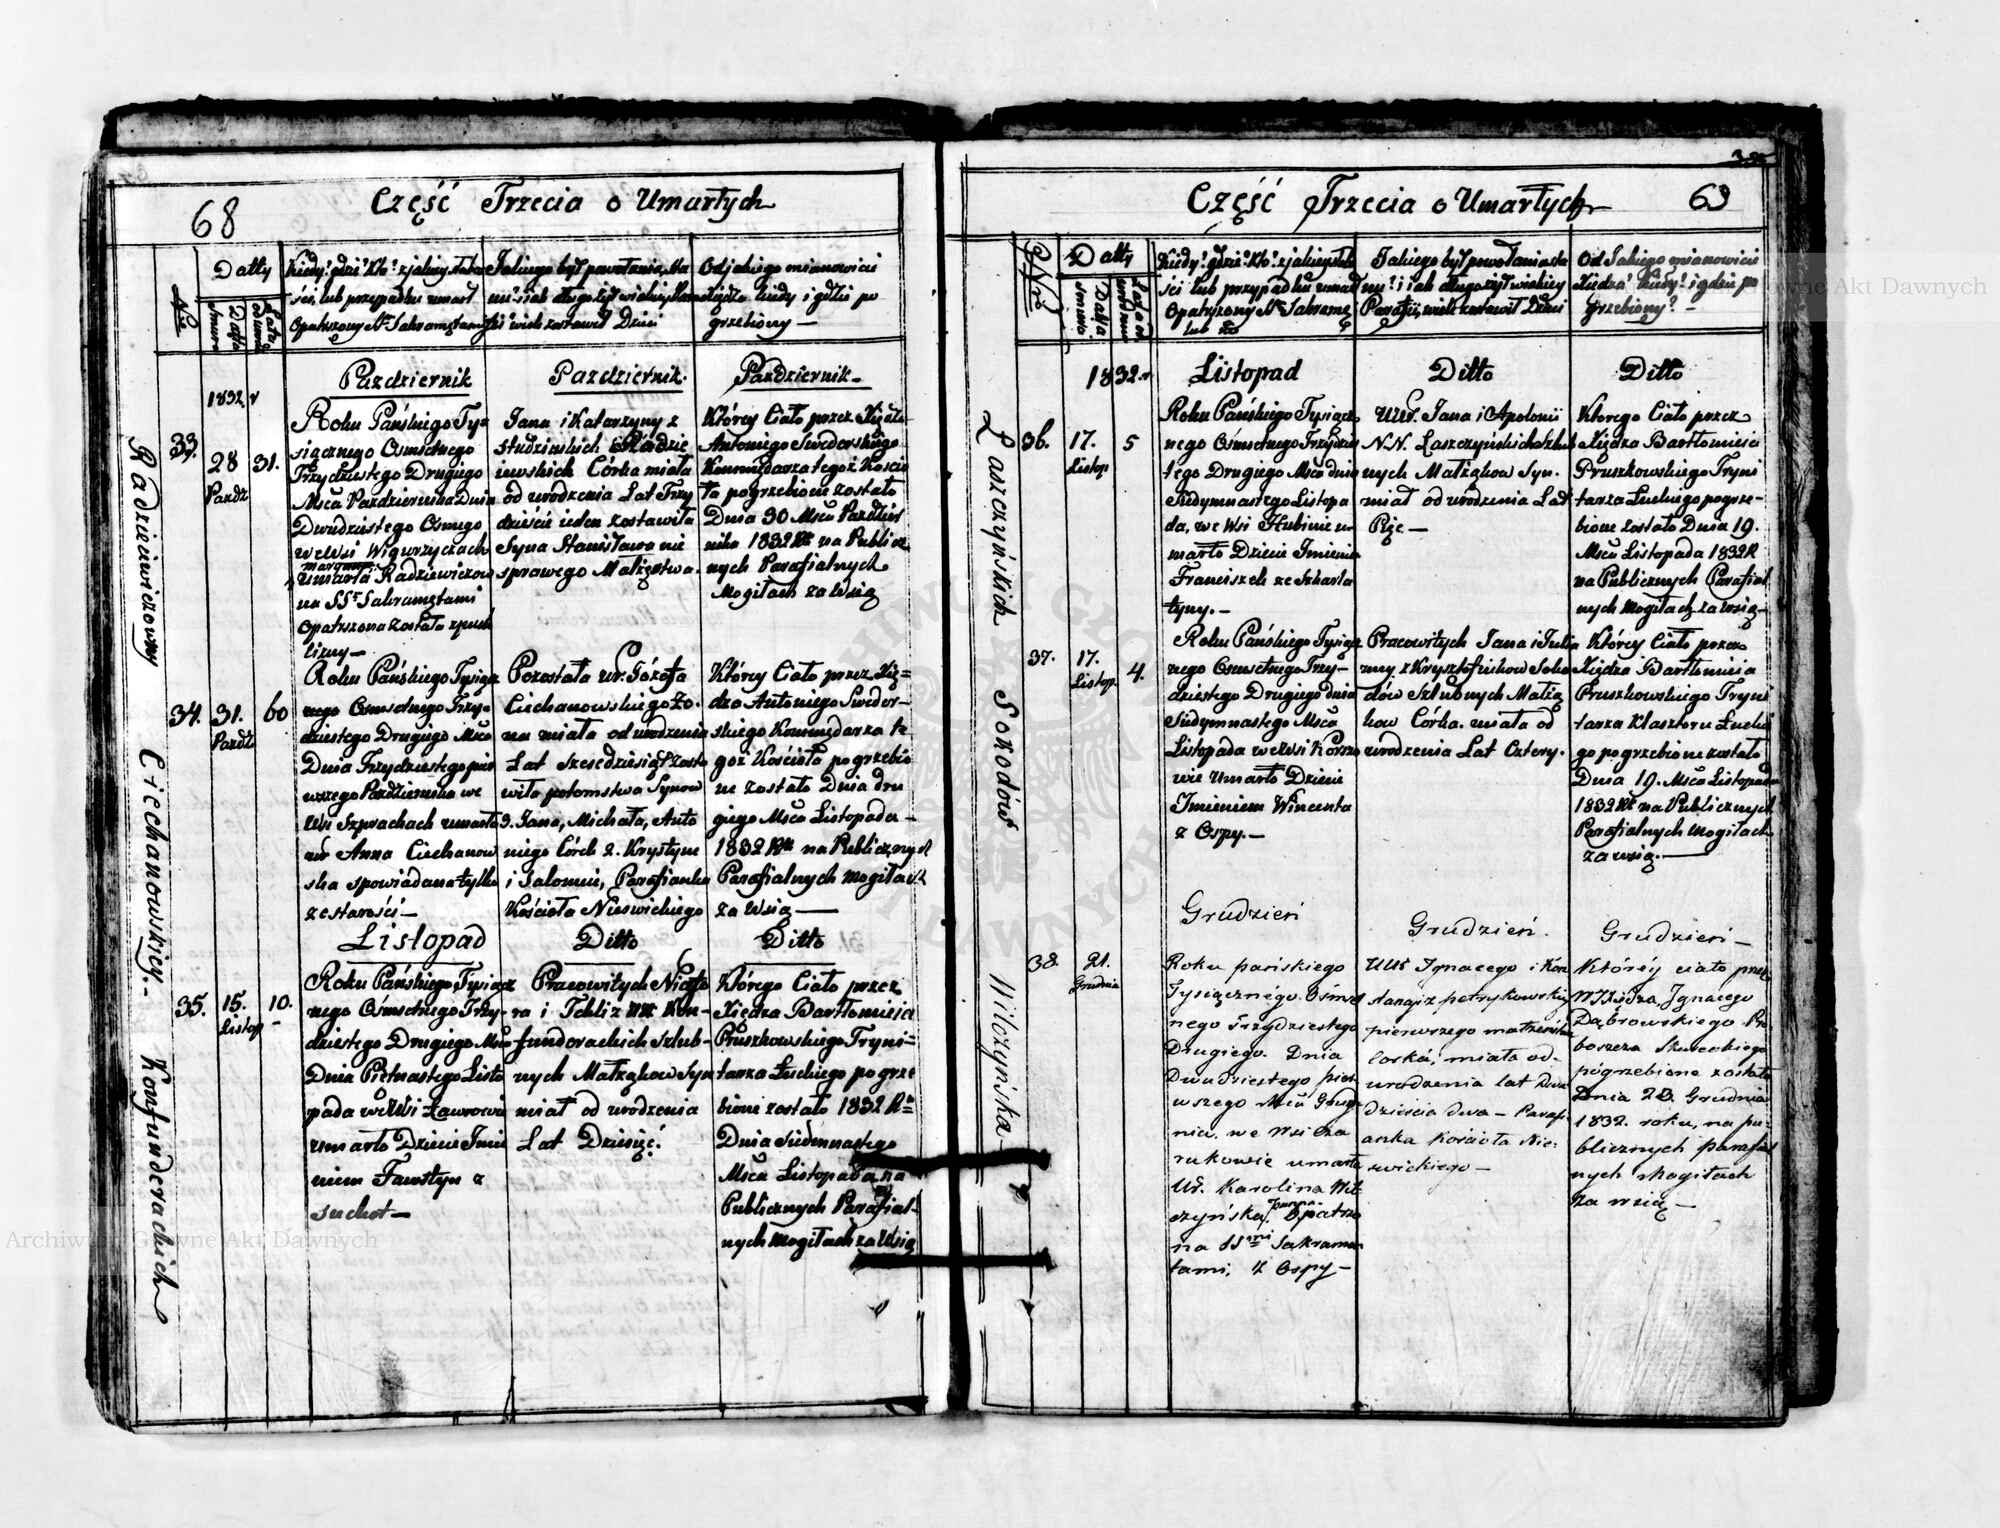 68
Część Trzecia o Umarłych
Nro
Datty
Data
Kiedy? gdzie? Kto? z jakiey słabo
ści, lub przypadku umarł
Opatrzony
Jakiego był powołania,
Od jakiego mianowicie
Xiędza kiedy i gdzie po
grzebiony —
Pazdziernik
Pazdziernik.
Pazdziernik
1832. r
33.
28
Pazdz
31.
Roku Pańskiego Ty
siącznego Osmsetnego
Trzydziestego Drugiego
Msca Pazdziernika Dnia
Dwudziestego Osmego
we Wsi Wigurzyczach
umarła Radziewiczow
na SSt Sakramętami
Opatrzona została z puch
liny —
Jana i Katarzyny z
Studzinskich Radzie
iewskich Córka miała
od urodzenia Lat Trzy
dzieście ieden zostawiła
Syna Stanisława nie
sprawego Małżęstwa.
Którey Ciało przez Xiędza
Antoniego Swiderskiego
Kommędarza tegoż Kościo
ła pogrzebione zostało
Dnia 30 Msca Pazdzier
nika 1832 Rk na Publicz
nych Parafialnych
Mogiłach za Wsią
34.
31.
Pazdz
60
Roku Pańskiego Tysiącz
nego Osmsetnego Trzy
dziestego Drugiego Msca
Dnia Trzydziestego pier
wszego Pazdziernika we
Wsi Szprachach umarła
ur Anna Ciechanow
ska spowiadana tylko
z starości —
Pozostała ur. Józefa
Ciechanowskiego Żo
na miała od urodzenia
Lat Szescdziesiąt zosta
wiła potomstwa Synow
3. Jana, Michała, Anto
niego Córek 2. Krystynę
i Salomię, Parafianka
Kościoła Nieswickiego
Którey Ciało przez Xię=
dza Antoniego Swider-
skiego Kommędarza te
goż Kościoła pogrzebio
ne zostało Dnia dru
giego Msca Listopada —
1832 Rk na Publicznych
Parafialnych Mogiłach
za Wsią —
Listopad
Ditto
Ditto
35.
15.
Listop
10.
Roku Pańskiego Tysiącz
nego Ośmsetnego Trzy-
dziestego Drugiego Msca
Dnia Pietnastego Listo
pada we Wsi Ławrowie
umarło Dziecie Imie
niem Faustyn z
suchot —
Pracowitych
ra i Tekli z Kon-
funderackich szlub-
nych Małżąkow Syn
miał od urodzenia
Lat Dziesięć.
Którego Ciało przez
Xiędza Bartłomieia
Pruszkowskiego Tryni-
tarza Łuckiego pogrze
bione zostało 1832 Rk
Dnia Siedmnastego
Msca Listopada na
Publicznych Parafial-
nych Mogiłach za Wsią
Radzieiwiczowny
Ciechanowskiey.
Konfunderackich
Część Trzecia o Umarłych
69
Nro
Datty
Data
Kiedy? gdzie? Kto? z jakiey słabo
ści lub przypadku umarł
Opatrzony
lub
Jakiego był powołania
Parafii, wiele zostawił Dzieci
Od Jakiego mianowicie
Xiędza kiedy? i gdzie po
grzebiony? —
1832. r
Listopad
Ditto
Ditto
36.
17.
Listop
5
Roku Pańskiego Tysiącz
nego Osmsetnego Trzydzies
tego Drugiego Msca dnia
Siedymnastego Listopa
da, we Wsi Hubinie u
marło Dziecie Imieniem
Franciszek ze Szkarla
tyny. —
Jana i Apolonii
N.N. Łaszczyńskich szlub
nych Małżąkow Syn.
miał od urodzenia Lat
Pięć —
Ktorego Ciało przez
Xiędza Bartłomieia
Pruszkowskiego Tryni
tarza Łuckiego pogrze-
bione zostało Dnia 19.
Msca Listopada 1832 R
na Publicznych Parafial
nych Mogiłach za Wsią —
37.
17.
Listop.
4.
Roku Pańskiego Tysiącz
nego Osmsetnego Trzy-
dziestego Drugiego dnia
Siedymnastego Msca
Listopada we Wsi Korszo
wie umarło Dziecie
Imieniem Wincenta
z Ospy. —
Pracowitych Jana i Julia
nny z Krysztofzikow Soko
dów Szlubnych Małżą
kow Córka. miała od
urodzenia Lat Cztery.
Którey Ciało przez
Xiędza Bartłomieia
Pruszkowskiego Tryni
tarza Klasztoru Łuckie
go pogrzebione zostało
Dnia 19. Msca Listopada
1832 Rk na Publicznych
Parafialnych Mogiłach
za wsią. —
Grudzień
Grudzień.
Grudzień —
38.
21.
Grudnia
Roku pańskiego
Tysiącznégo Ośmset
nego Trzydziestego
Drugiego. Dnia
Dwudziestego pier
wszego Msca Grud
nia. we Wsi Cza
rukowie umarła
Ur. Karolina Wil
czyńska, Panna. Opatrzo
na SSmi Sakramen
tami, z Ospy —
Ignacego i Kon
stancyi z petrykowskich
pierwszego małżeństwa
corka, miała od-
urodzenia lat Dwa
dzieścia dwa — Parafi
anka Kościoła Nie-
swickiego —
Któréy ciało przez
Ignacego
Dąbrowskiego Pro
boszcza
pógrzebione zostało
Dnia 23. Grudnia
1832. roku, na pu-
blicznych parafial
nych Mogiłach
za wsią —
Łaszczyńskich
Sokodów
Wilczyńska
Archiwum Główne Akt Dawnych
Archiwum Główne Akt Dawnych
ARCHIWUM GŁÓWNE AKT DAWNYCH